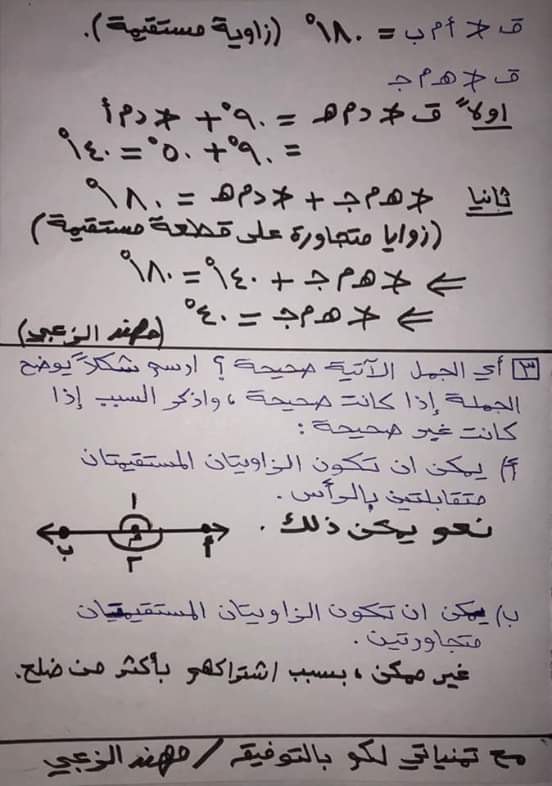 ق ∢ أ م ب = ١٨٠° (زاوية مستقيمة).
ق ∢ هـ م جـ
اولاً ق ∢ د م هـ = ٩٠° + ∢ د م أ
= ٩٠° + ٥٠° = ١٤٠°
ثانيا ∢ هـ م جـ + ∢ د م هـ = ١٨٠°
(زوايا متجاورة على قطعة مستقيمة)
⇐ ∢ هـ م جـ + ١٤٠° = ١٨٠°
⇐ ∢ هـ م جـ = ٤٠°
(مهند الزعبي)
٣ أي الجمل الآتية صحيحة؟ ارسم شكلاً يوضح
الجملة إذا كانت صحيحة، واذكر السبب إذا
كانت غير صحيحة:
أ) يمكن ان تكون الزاويتان المستقيمتان
متقابلتين بالرأس.
نعم يمكن ذلك.
١
ب م أ
٢
ب) يمكن ان تكون الزاويتان المستقيمتان
متجاورتين.
غير ممكن، بسبب اشتراكهم بأكثر من ضلع.
مع تمنياتي لكم بالتوفيق / مهند الزعبي